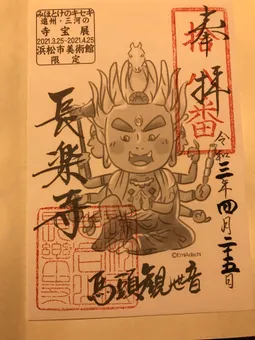 みほとけのキセキ
遠州・三河の
寺宝展
2021.3.25-2021.4.25
浜松市美術館
限定
奉拝
令和三年四月二十五日
長楽寺
馬頭観世音
©EmiAdachi